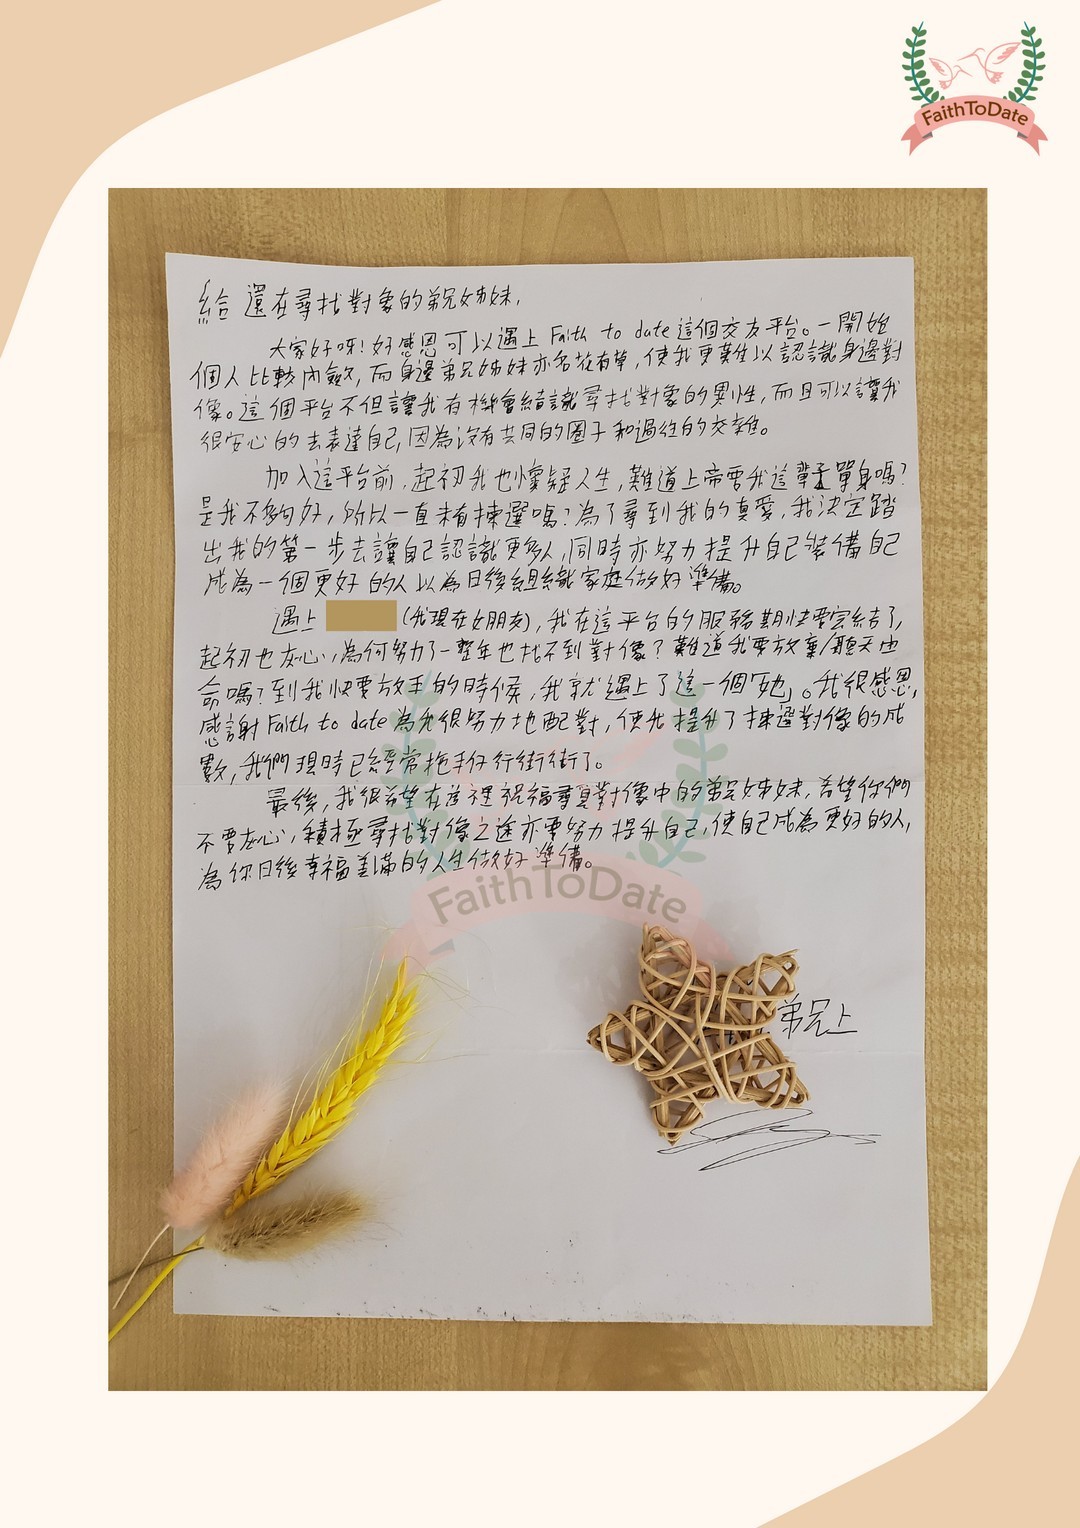 FaithToDate
給 還在尋找對象的弟兄姊妹,
大家好呀!好感恩可以遇上 Faith to date 這個交友平台。一開始
個人比較內斂,而身邊弟兄姊妹亦名花有草,使我更難以認識身邊對
像。這個平台不但讓我有機會結識尋找對象的異性,而且可以讓我
很安心的去表達自己,因為沒有共同的圈子和過往的交雜。
加入這平台前,起初我也懷疑人生,難道上帝要我這輩子單身嗎?
是我不夠好,所以一直未有揀選嗎?為了尋到我的真愛,我決定踏
出我的第一步去讓自己認識更多人,同時亦努力提升自己裝備自己
成為一個更好的人以為日後組織家庭做好準備。
遇上 (我現在女朋友),我在這平台的服務期快要完結了,
起初也灰心,為何努力了一整年也找不到對像?難道我要放棄/聽天由
命嗎?到我快要放手的時候,我就遇上了這一個「她」。我很感恩,
感謝 Faith to date 為我很努力地配對,使我提升了揀選對像的成
數,我們現時已經常拖手仔行街街了。
最後,我很希望在這裡祝福尋覓對像中的弟兄姊妹,希望你們
不要灰心,積極尋找對像之途亦要努力提升自己,使自己成為更好的人,
為你日後幸福美滿的人生做好準備。
FaithToDate
弟兄上